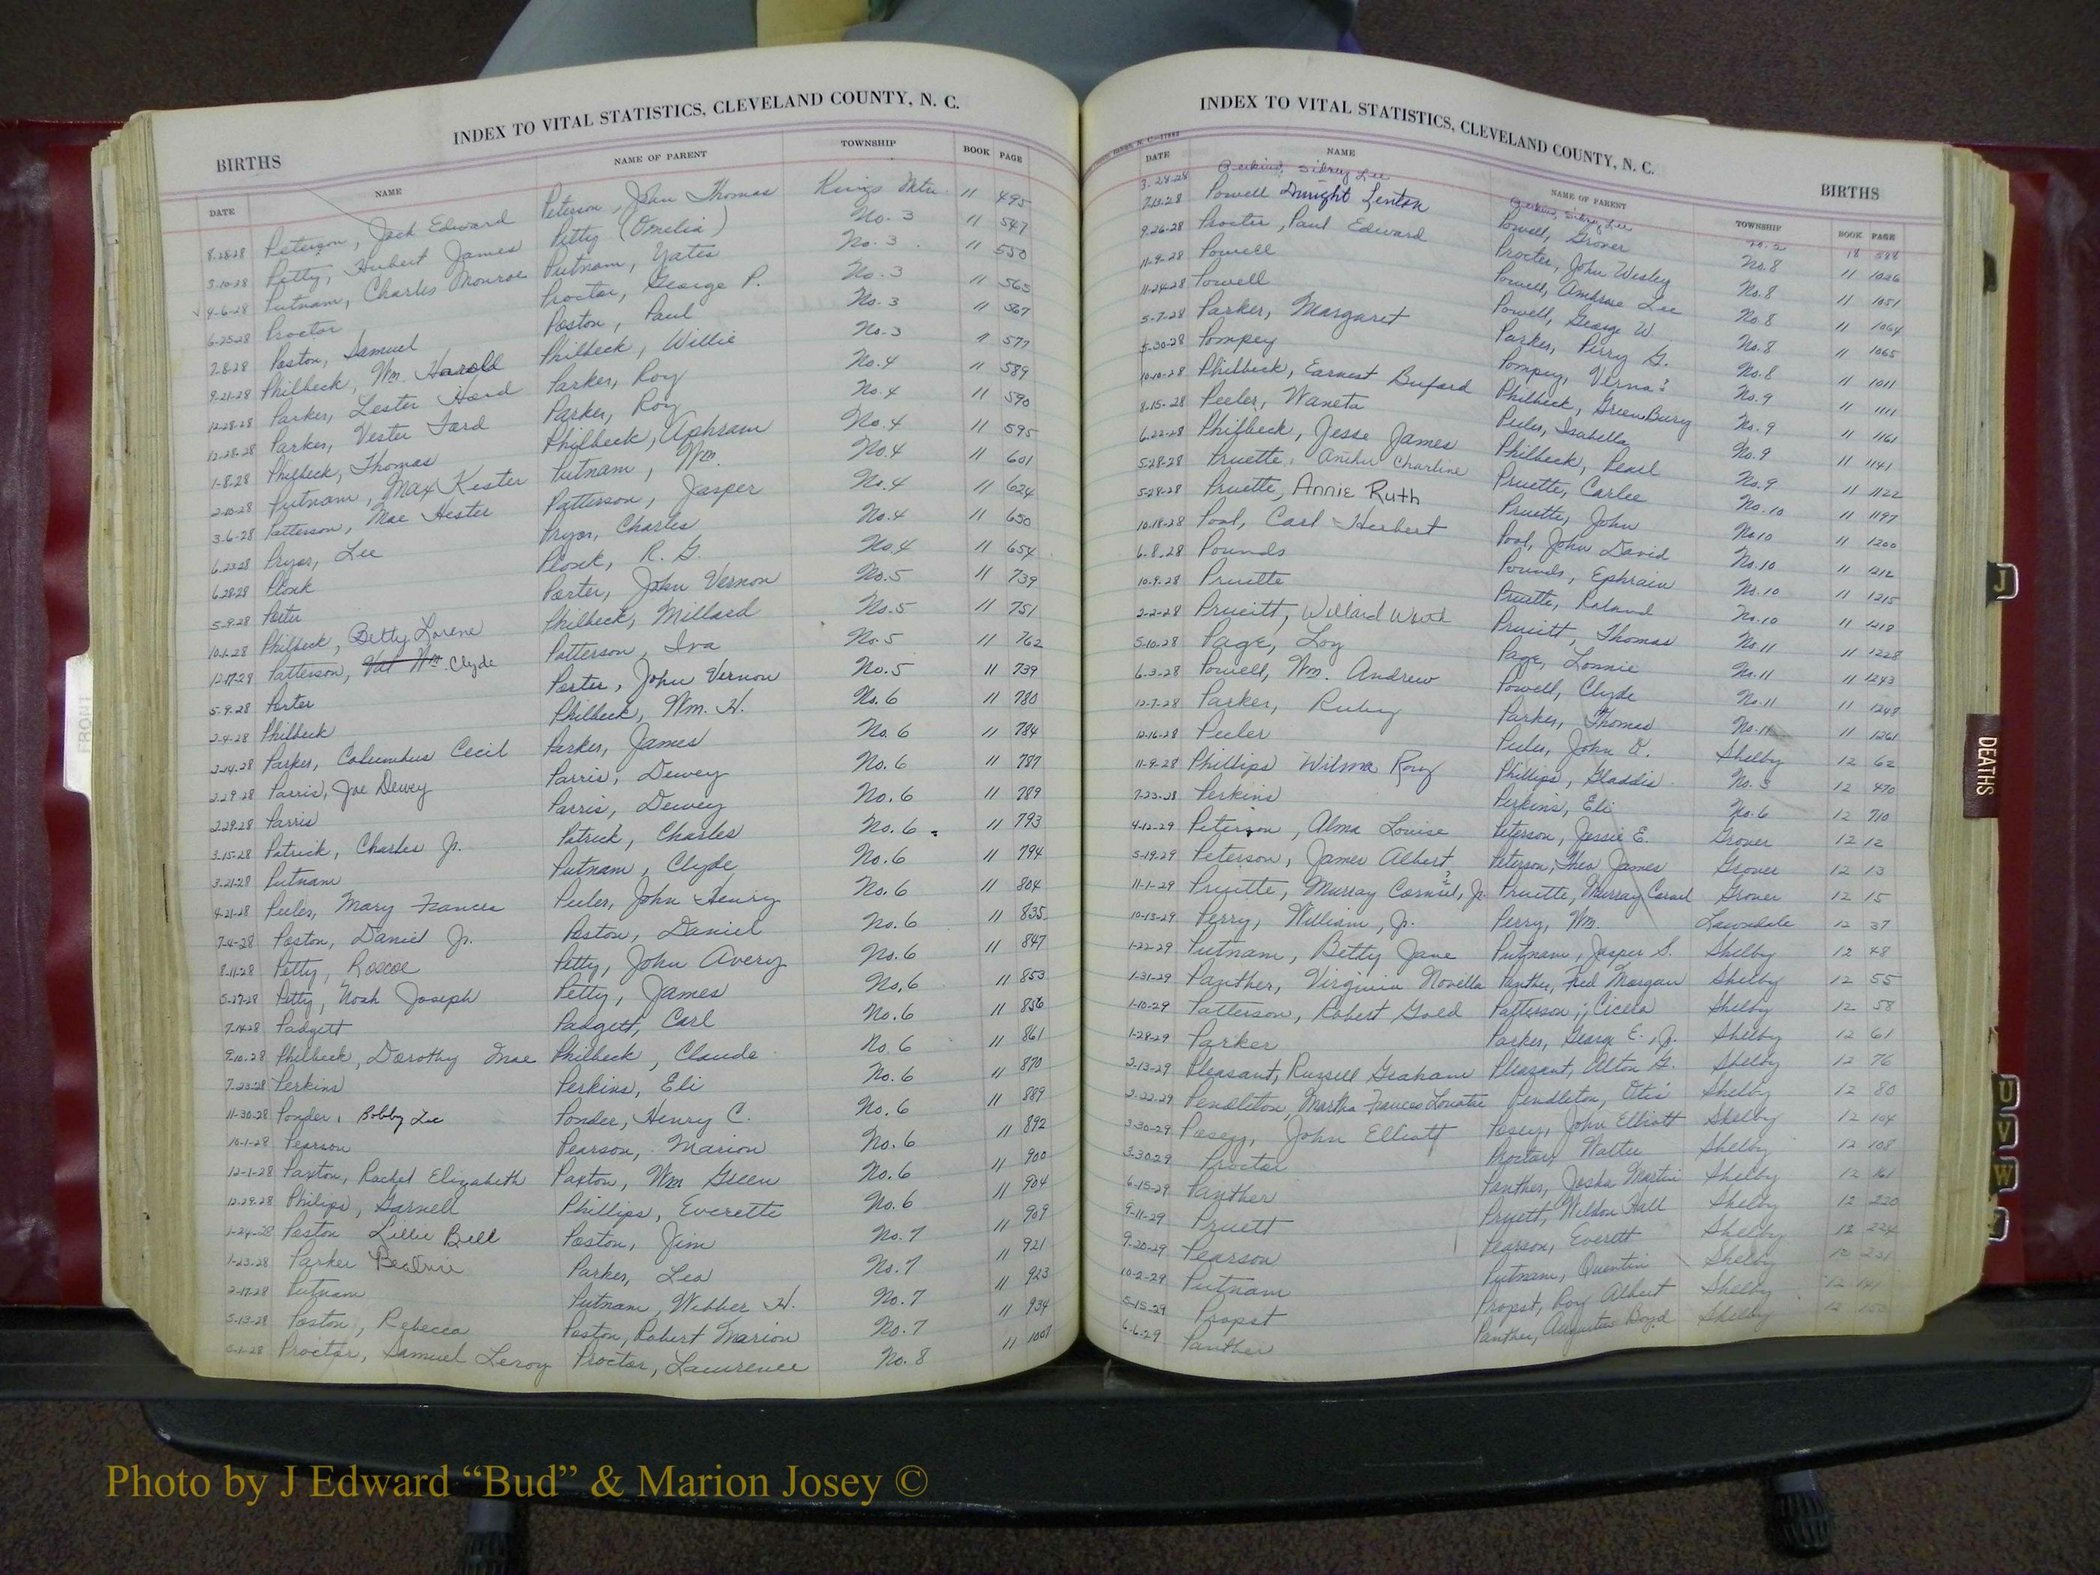 INDEX TO VITAL STATISTICS, CLEVELAND COUNTY, N. C.
BIRTHS
DATE NAME NAME OF PARENT TOWNSHIP BOOK PAGE
8-28-28 Peterson, Jack Edward Peterson, John Thomas Kings Mtn. 11 495
3-10-28 Petty, Hubert James Petty (Omelia) No. 3 11 547
9-6-28 Putnam, Charles Monroe Putnam, Yates No. 3 11 550
6-25-28 Proctor Proctor, George P. No. 3 11 565
7-8-28 Poston, Samuel Poston, Paul No. 3 11 567
9-21-28 Philbeck, Wm. Harold Philbeck, Willie No. 3 11 577
12-28-28 Parker, Lester Hard Parker, Roy No. 4 11 589
12-28-28 Parker, Vester Ford Parker, Roy No. 4 11 590
1-8-28 Philbeck, Thomas Philbeck, Aphram No. 4 11 595
2-10-28 Putnam, Max Kester Putnam, Wm. No. 4 11 601
3-6-28 Patterson, Mae Hester Patterson, Jasper No. 4 11 624
6-23-28 Pryor, Lee Pryor, Charles No. 4 11 650
6-28-28 Plonk Plonk, R. G. No. 4 11 654
5-9-28 Porter, John Vernon No. 5 11 739
10-1-28 Philbeck, Betty Lorene Philbeck, Millard No. 5 11 751
12-17-28 Patterson, Clyde Patterson, Iva No. 5 11 762
5-9-28 Porter Porter, John Vernon No. 5 11 739
2-4-28 Philbeck Philbeck, Wm. H. No. 6 11 780
3-14-28 Parker, Columbus Cecil Parker, James No. 6 11 784
2-29-28 Parris, Joe Dewey Parris, Dewey No. 6 11 787
2-29-28 Parris Parris, Dewey No. 6 11 789
3-15-28 Patrick, Charles Jr. Patrick, Charles No. 6 11 793
3-21-28 Putnam Putnam, Clyde No. 6 11 794
4-21-28 Peeler, Mary Frances Peeler, John Henry No. 6 11 804
7-4-28 Poston, Daniel Jr. Poston, Daniel No. 6 11 835
8-11-28 Petty, Roscoe Petty, John Avery No. 6 11 847
5-27-28 Petty, Noah Joseph Petty, James No. 6 11 853
7-14-28 Padgett Padgett, Carl No. 6 11 856
9-10-28 Philbeck, Dorothy Mae Philbeck, Claude No. 6 11 861
7-23-28 Perkins Perkins, Eli No. 6 11 870
11-30-28 Ponder, Bobby Lee Ponder, Henry C. No. 6 11 889
10-1-28 Pearson Pearson, Marion No. 6 11 892
12-1-28 Paxton, Rachel Elizabeth Paxton, Wm Green No. 6 11 900
12-29-28 Philips, Garnell Phillips, Everette No. 6 11 904
1-24-28 Poston Lillie Bell Poston, Jim No. 7 11 909
1-23-28 Parker Beatrice Parker, Leo No. 7 11 921
2-17-28 Putnam Putnam, Webber H. No. 7 11 923
5-13-28 Poston, Rebecca Poston, Robert Marion No. 7 11 934
Proctor, Samuel Leroy Proctor, Lawrence No. 8 11 1007
INDEX TO VITAL STATISTICS, CLEVELAND COUNTY, N. C.
BIRTHS
DATE NAME NAME OF PARENT TOWNSHIP BOOK PAGE
3-28-28 Perkins, Sidney Lee Perkins, Sidney Lee 18 588
7-13-28 Powell Dwight Lenton Powell, Grover No. 8 11 1026
9-26-28 Procter, Paul Edward Procter, John Wesley No. 8 11 1051
11-9-28 Powell Powell, Ambrose Lee No. 8 11 1064
11-24-28 Powell Powell, George W. No. 8 11 1065
5-7-28 Parker, Margaret Parker, Perry G. No. 8 11 1011
5-30-28 Pompey Pompey, Verna? No. 9 11 1111
10-10-28 Philbeck, Earnest Buford Philbeck, Green Bury No. 9 11 1161
8-15-28 Peeler, Waneta Peeler, Isabella No. 9 11 1141
6-22-28 Philbeck, Jesse James Philbeck, Pearl No. 9 11 1122
5-28-28 Pruette, Charline Pruette, Carlee No. 10 11 1197
5-28-28 Pruette, Annie Ruth Pruette, John No. 10 11 1200
10-18-28 Pool, Carl Herbert Pool, John David No. 10 11 1212
6-8-28 Pounds Pounds, Ephraim No. 10 11 1215
10-9-28 Pruette Pruette, Roland No. 10 11 1218
2-2-28 Prueitt, Willard Pruitt, Thomas No. 11 11 1228
5-10-28 Page, Loy Page, Lonnie No. 11 11 1243
6-3-28 Powell, Wm. Andrew Powell, Clyde No. 11 11 1248
12-7-28 Parker, Ruby Parker, Thomas No. 11 11 1261
12-16-28 Peeler Peeler, John D. Shelby 12 62
11-9-28 Phillips Wilma Roy Phillips, Gladdis No. 3 12 470
7-23-28 Perkins Perkins, Eli No. 6 12 710
4-12-29 Peterson, Alma Louise Peterson, Jessie E. Grover 12 12
5-19-29 Peterson, James Albert Peterson, Theo James Grover 12 13
11-1-29 Pruette, Murray Jr. Pruette, Murray Grover 12 15
10-13-29 Perry, William, Jr. Perry, Wm. Lawndale 12 37
1-22-29 Putnam, Betty Jane Putnam, Jasper S. Shelby 12 48
1-31-29 Panther, Virginia Novella Panther, Fred Morgan Shelby 12 55
1-10-29 Patterson, Robert Gold Patterson, Cicero Shelby 12 58
1-28-29 Parker Parker, George E., Jr. Shelby 12 61
2-13-29 Pleasant, Russell Graham Pleasant, Alton G. Shelby 12 76
2-22-29 Pendleton, Martha Frances Pendleton, Otis Shelby 12 80
3-30-29 Posey, John Elliott Posey, John Elliott Shelby 12 104
3-30-29 Proctor Proctor, Walter Shelby 12 108
6-15-29 Panther Panther, Josha Martin Shelby 12 161
9-11-29 Pruett Pruett, Weldon Hall Shelby 12 220
9-20-29 Pearson Pearson, Everett Shelby 12 224
10-2-29 Putnam Putnam, Quentin Shelby 12 231
5-15-29 Propst Propst, Roy Albert Shelby 12
6-6-29 Panther Panther, Augustus Boyd Shelby 12
FRONT
J
DEATHS
U
V
W
Photo by J Edward “Bud” & Marion Josey ©